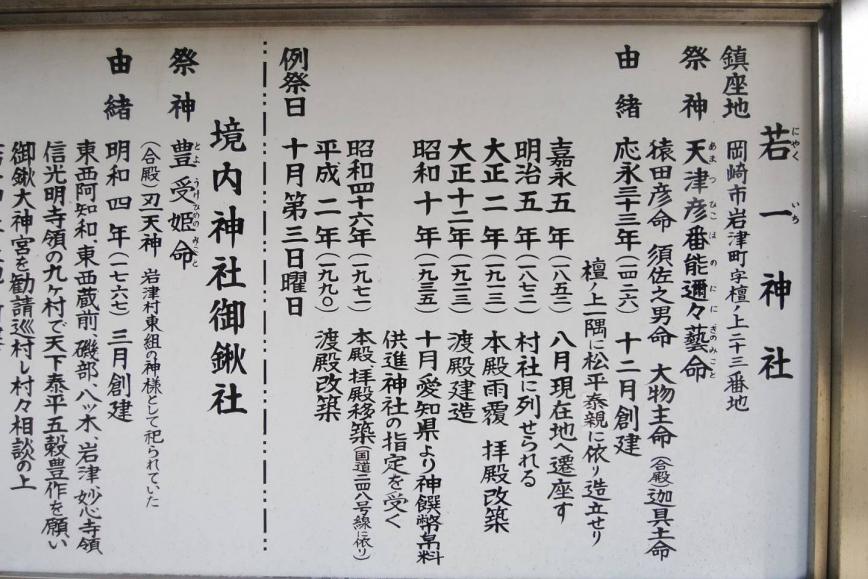 若一神社
にゃく いち
鎮座地 岡崎市岩津町字檀ノ上二十三番地
祭神 天津彦番能邇々藝命
あまつひこほのににぎのみこと
猿田彦命 須佐之男命 大物主命 (合殿)迦具土命
由緒 応永三十三年(一四二六) 十二月創建
檀ノ上一隅に松平泰親に依り造立せり
嘉永五年(一八五二) 八月現在地へ遷座す
明治五年(一八七二) 村社に列せられる
大正二年(一九一三) 本殿雨覆 拝殿改築
大正十二年(一九二三) 渡殿建造
昭和十年(一九三五) 十月愛知県より神饌幣帛料
供進神社の指定を受く
昭和四十六年(一九七一) 本殿、拝殿移築(国道二四八号線に依り)
平成二年(一九九〇) 渡殿改築
例祭日 十月第三日曜日
境内神社御鍬社
祭神 豊受姫命
とようけひめのみこと
(合殿)刃天神 岩津村東組の神様として祀られていた
由緒 明和四年(一七六七) 三月創建
東西阿知和、東西蔵前、磯部、八ッ木、岩津、妙心寺領
信光明寺領の九ヶ村で天下泰平五穀豊作を願い
御鍬大神宮を勧請巡村し村々相談の上